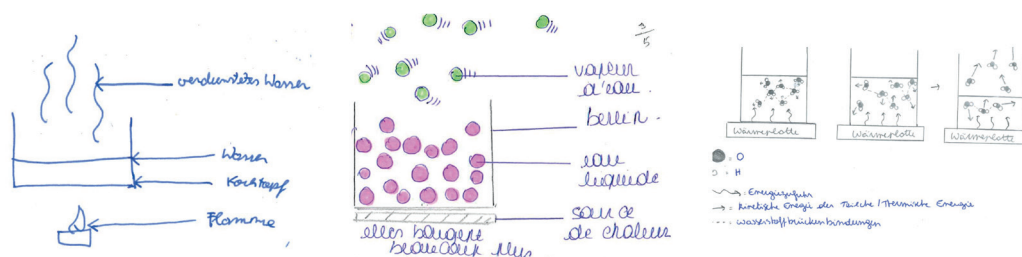 verdunstetes Wasser
Wasser
Kochtopf
Flamme
3/5
vapeur
d'eau.
eau
liquide
source
de chaleur
elles bougent
beaucoup plus
Wärmeplatte
Wärmeplatte
Wärmeplatte
: O
: H
: Energiezufuhr
: kinetische Energie der Teilchen/Thermische Energie
: Wasserstoffbrückenbindungen